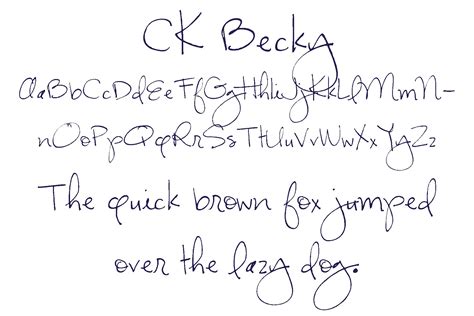 CK Becky
AaBbCcDdEeFfGgHhIiJjKkLlMmN-
nOoPpQqRrSsTtUuVvWwXxYyZz
The quick brown fox jumped
over the lazy dog.